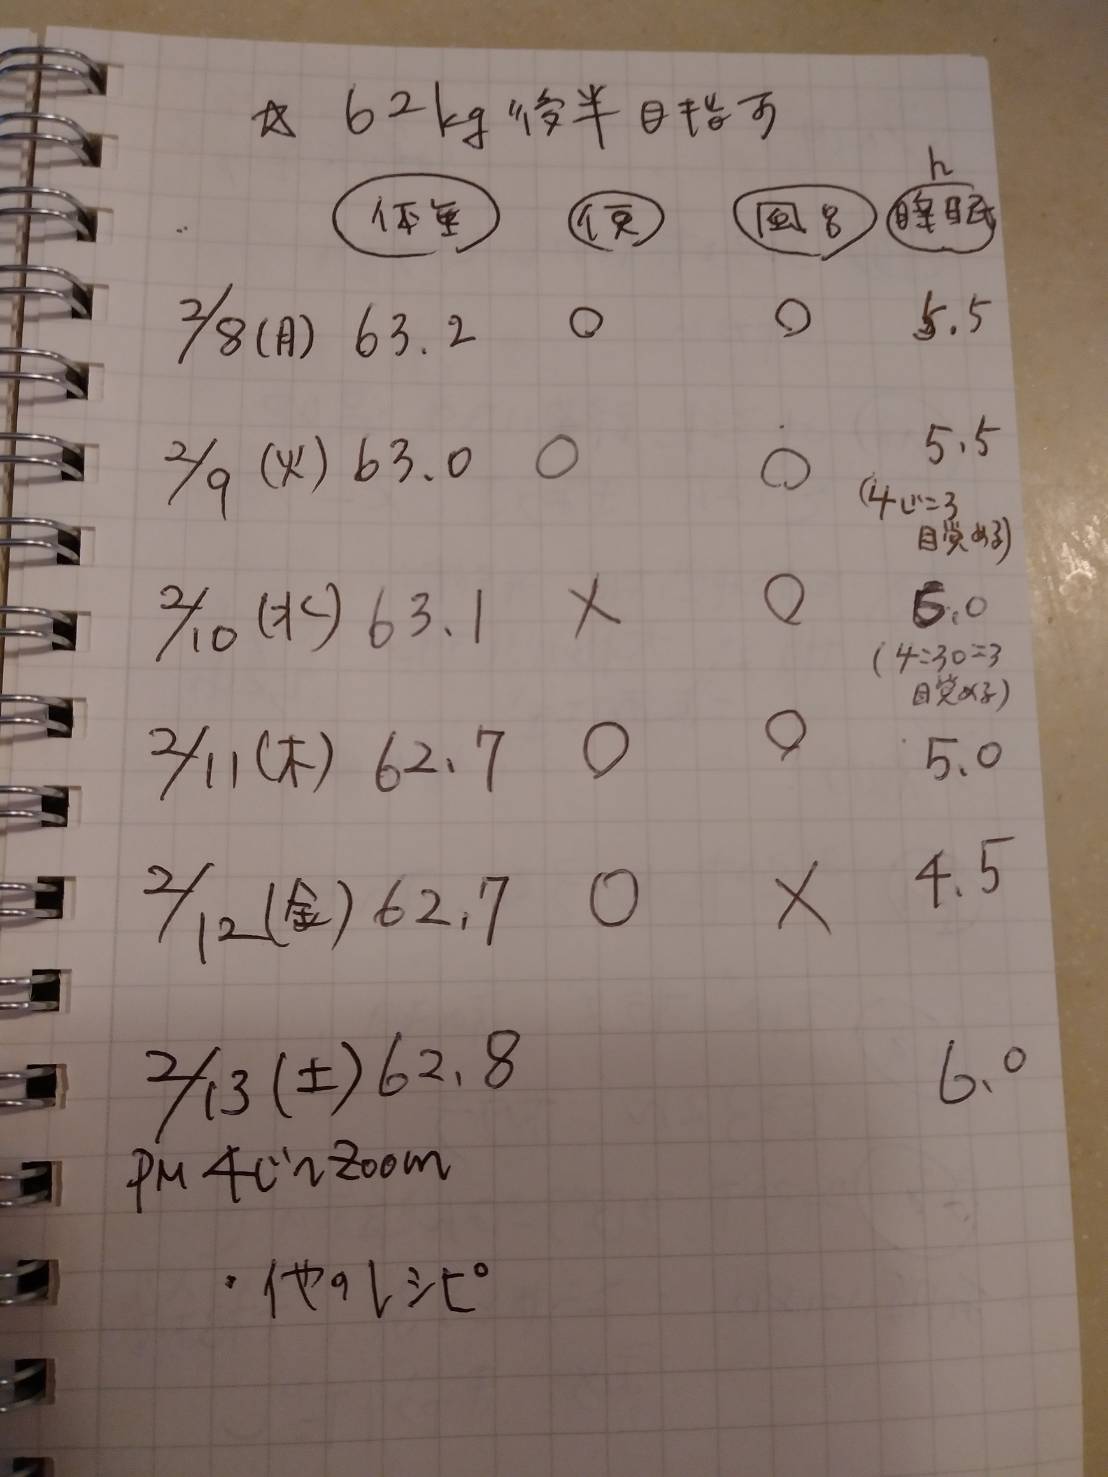 ☆ 62kg後半目指す
h
体重 便 風呂 睡眠
2/8(月) 63.2 ○ ○ 5.5
2/9(火) 63.0 ○ ○ 5.5
(4じに
目覚める)
2/10(水) 63.1 × ○ 6.0
(4:30に
目覚める)
2/11(木) 62.7 ○ ○ 5.0
2/12(金) 62.7 ○ × 4.5
2/13(土) 62.8 6.0
PM 4じ〜Zoom
・他のレシピ